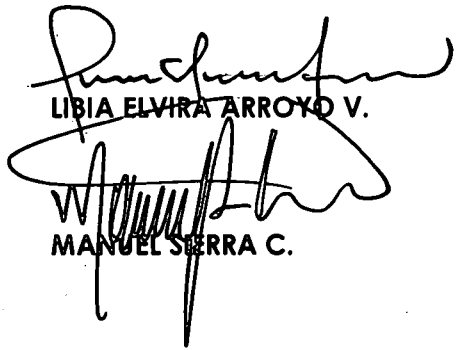 LIBIA ELVIRA ARROYO V.
MANUEL SIERRA C.